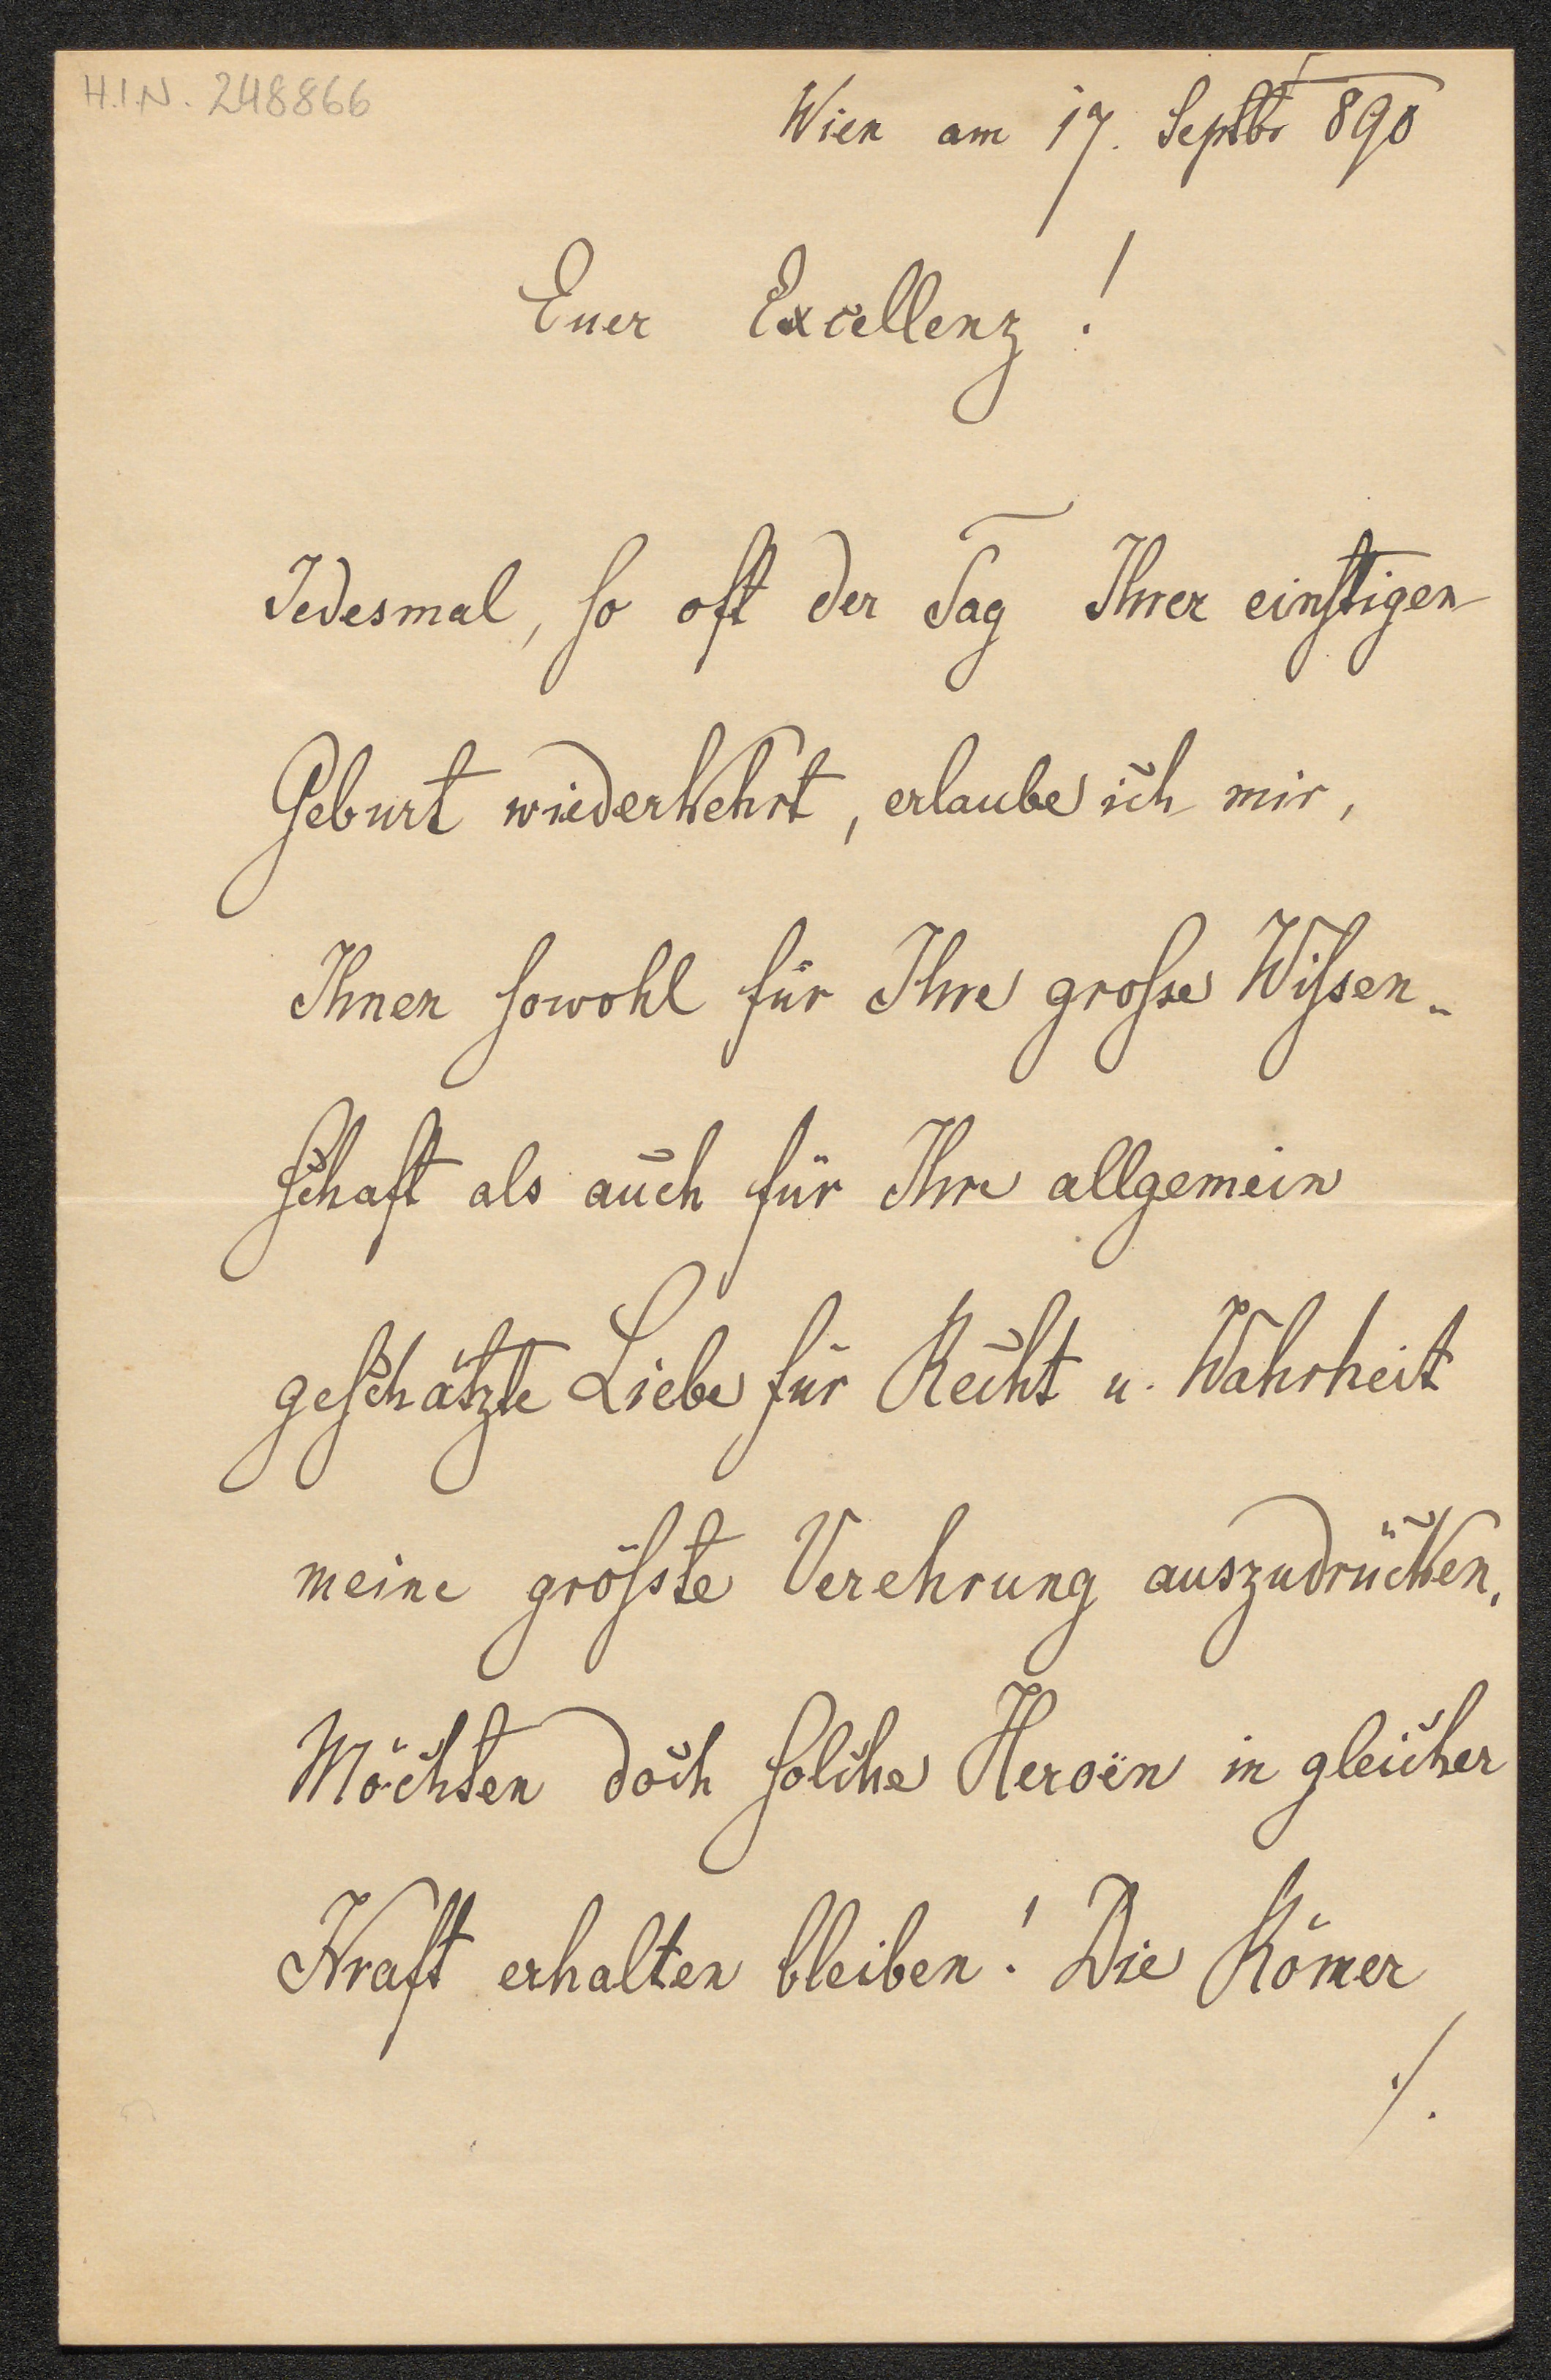 H.I.N. 248866
Wien am 17. Septbr 890
Euer Excellenz!
Jedesmal, so oft der Tag Ihrer einstigen
Geburt wiederkehrt, erlaube ich mir,
Ihnen sowohl für Ihre grosse Wissen-
schaft als auch für Ihre allgemein
geschätzte Liebe für Recht u. Wahrheit
meine grösste Verehrung auszudrücken.
Möchten doch solche Heroën in gleicher
Kraft erhalten bleiben! Die Römer
./.